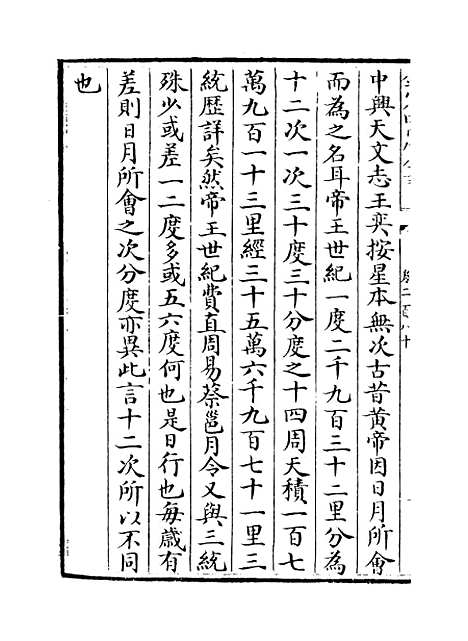 中興天文志王奕按星本無次古昔黄帝因日月所會
而為之名耳帝王世紀一度二千九百三十二里分為
十二次一次三十度三十分度之十四周天積一百七
萬九百一十三里經三十五萬六千九百七十一里三
統歴詳矣然帝王世紀費直周易蔡邕月令又與三統
殊少或差一二度多或五六度何也是日行也每歲有
差則日月所會之次分度亦異此言十二次所以不同
也